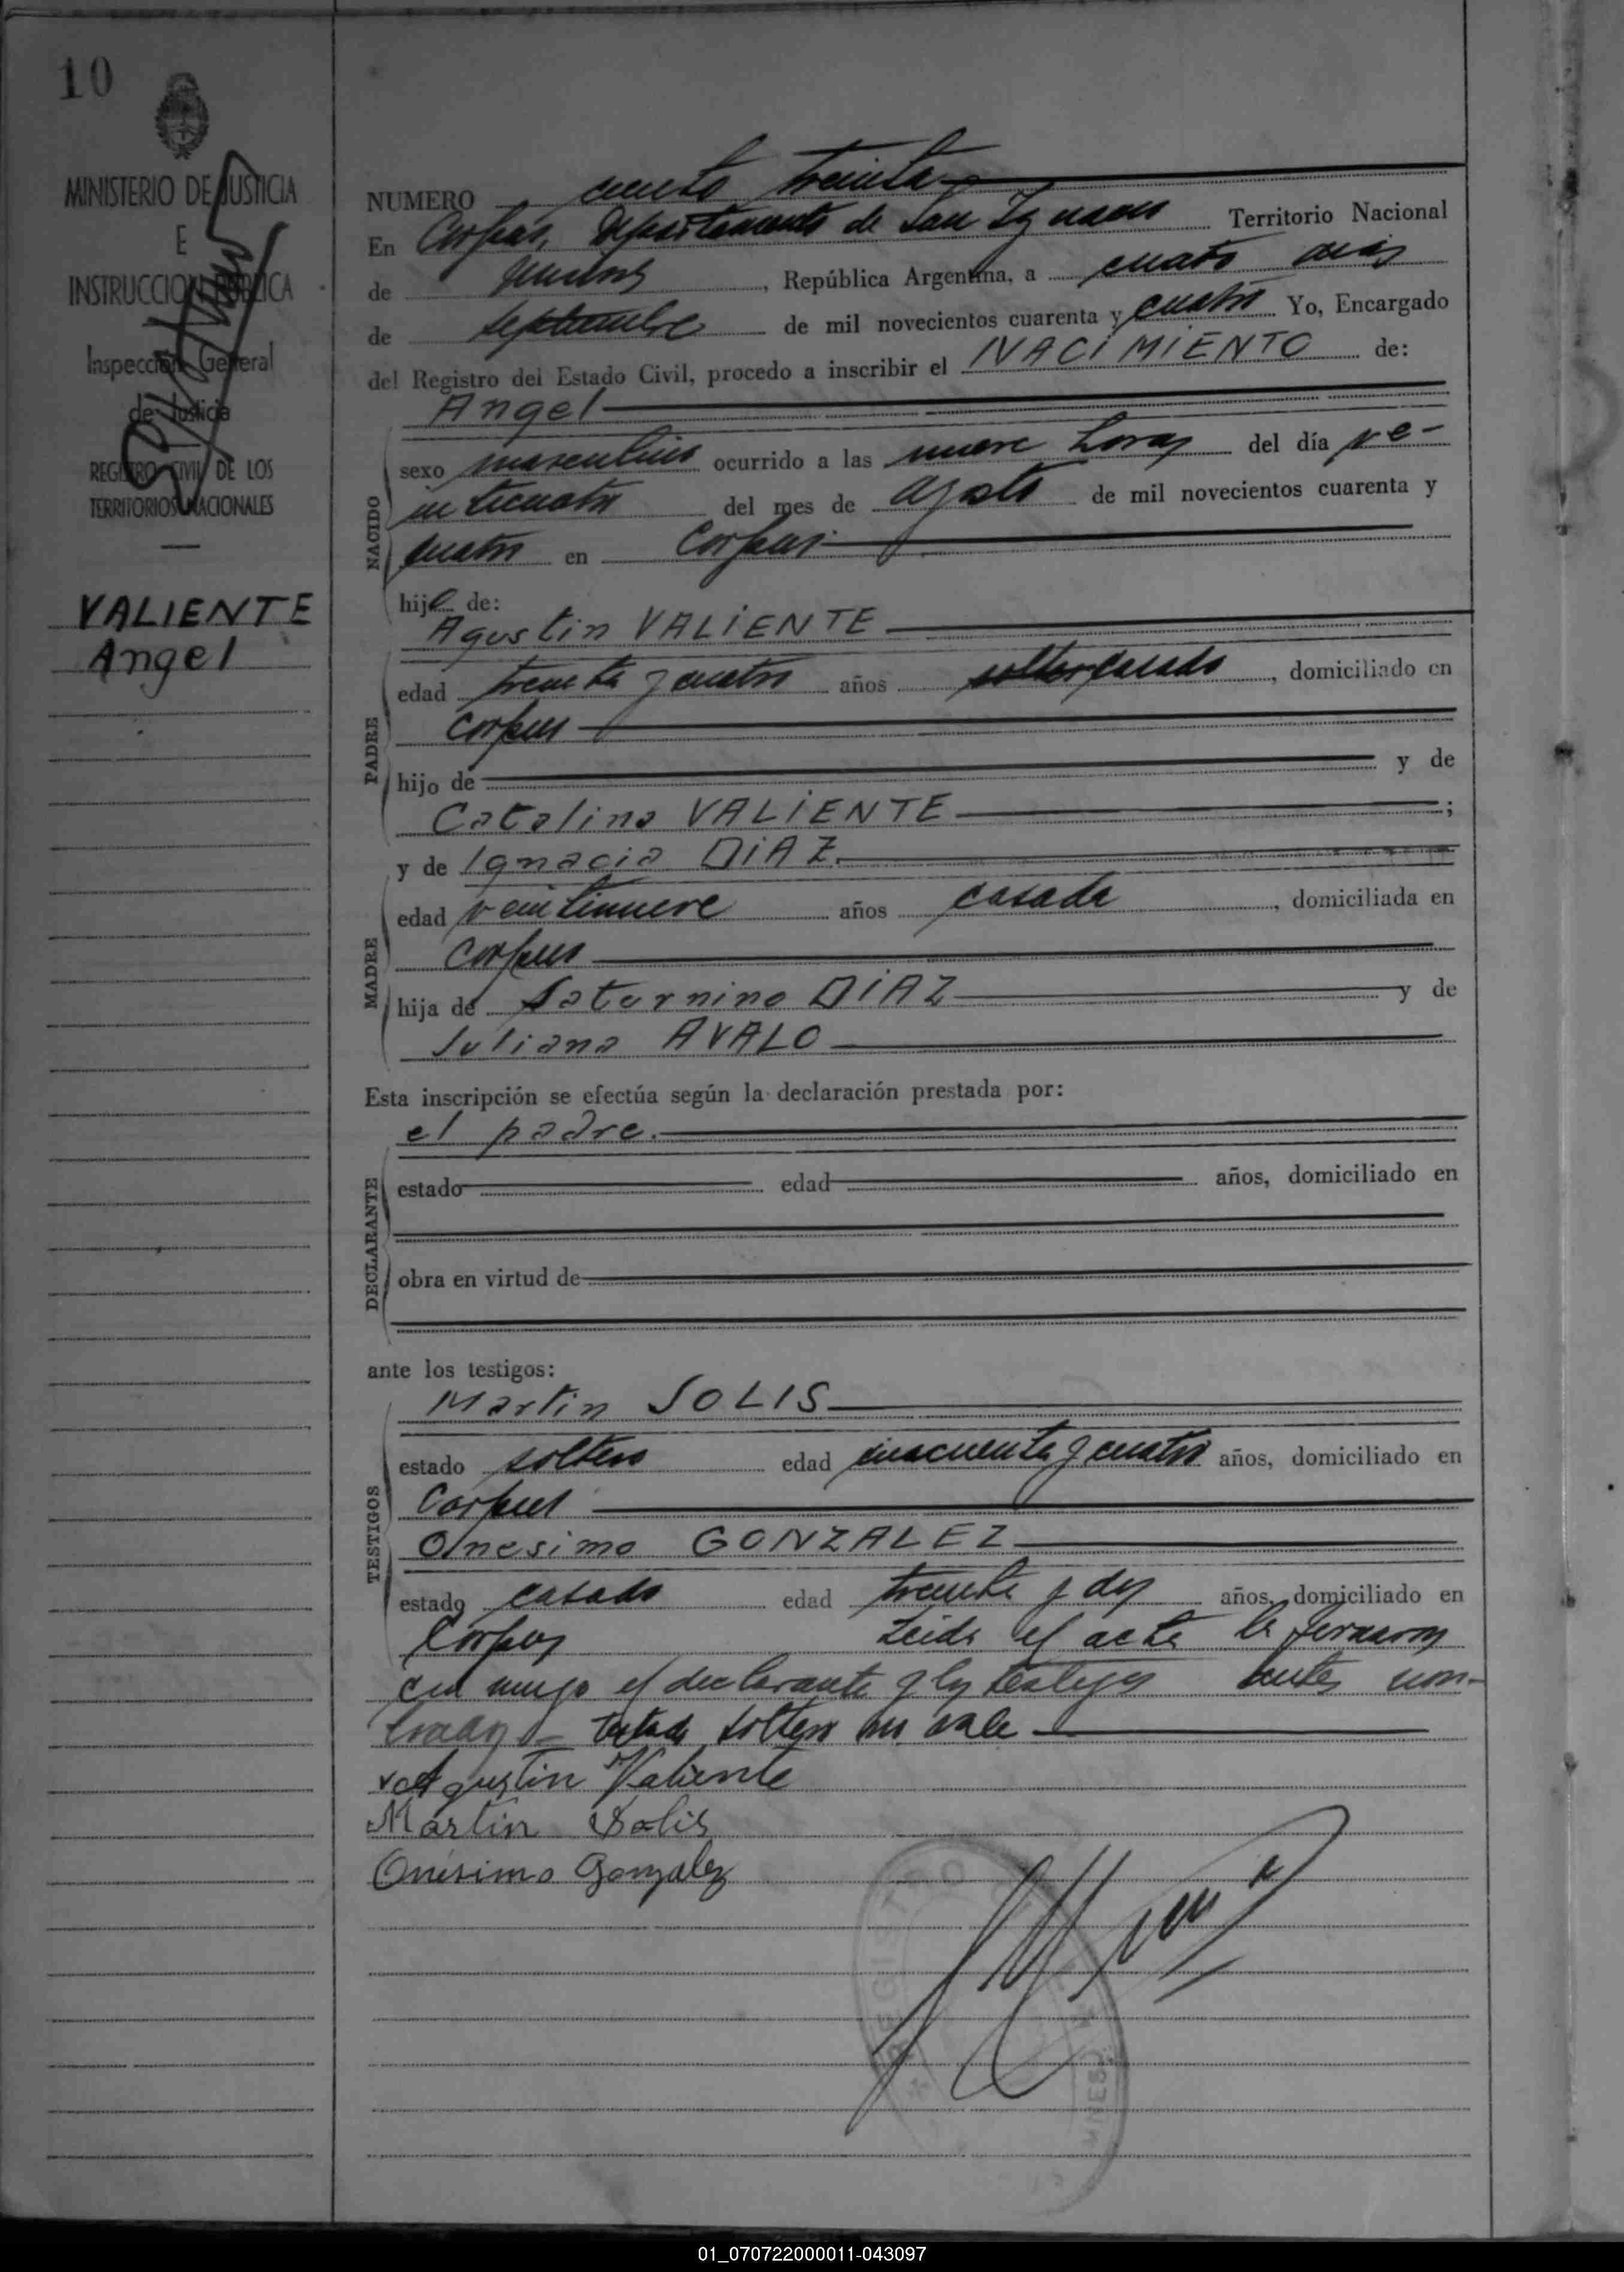 10
MINISTERIO DE JUSTICIA
E
INSTRUCCION PUBLICA
Inspección General
de Justicia
REGISTRO CIVIL DE LOS
TERRITORIOS NACIONALES
VALIENTE
Angel
NUMERO ciento treinta
En Corpus, Departamento de San Ignacio Territorio Nacional
de Misiones, República Argentina, a cuatro días
de Septiembre de mil novecientos cuarenta y cuatro Yo, Encargado
del Registro del Estado Civil, procedo a inscribir el NACIMIENTO de:
Angel
NACIDO
sexo masculino ocurrido a las nueve horas del día ve-
inticuatro del mes de agosto de mil novecientos cuarenta y
cuatro en Corpus
hijo de:
Agustin VALIENTE
PADRE
edad treinta y cuatro años soltero casado, domiciliado en
Corpus
hijo de y de
Catalina VALIENTE ;
y de Ignacia DIAZ.
MADRE
edad veintinueve años casada, domiciliada en
Corpus
hija de Saturnino DIAZ y de
Juliana AVALO
Esta inscripción se efectúa según la declaración prestada por:
el padre.
DECLARANTE
estado edad años, domiciliado en
obra en virtud de
ante los testigos:
Martin SOLIS
TESTIGOS
estado soltero edad cincuenta y cuatro años, domiciliado en
Corpus
Onesimo GONZALEZ
estado casado edad treinta y dos años, domiciliado en
Corpus Leida el acta la firmaron
conmigo el declarante y los testigos antes nom-
brados - testado soltero no vale
Agustin Valiente
Martin Solis
Onesimo Gonzalez
REGISTRO
01_070722000011-043097